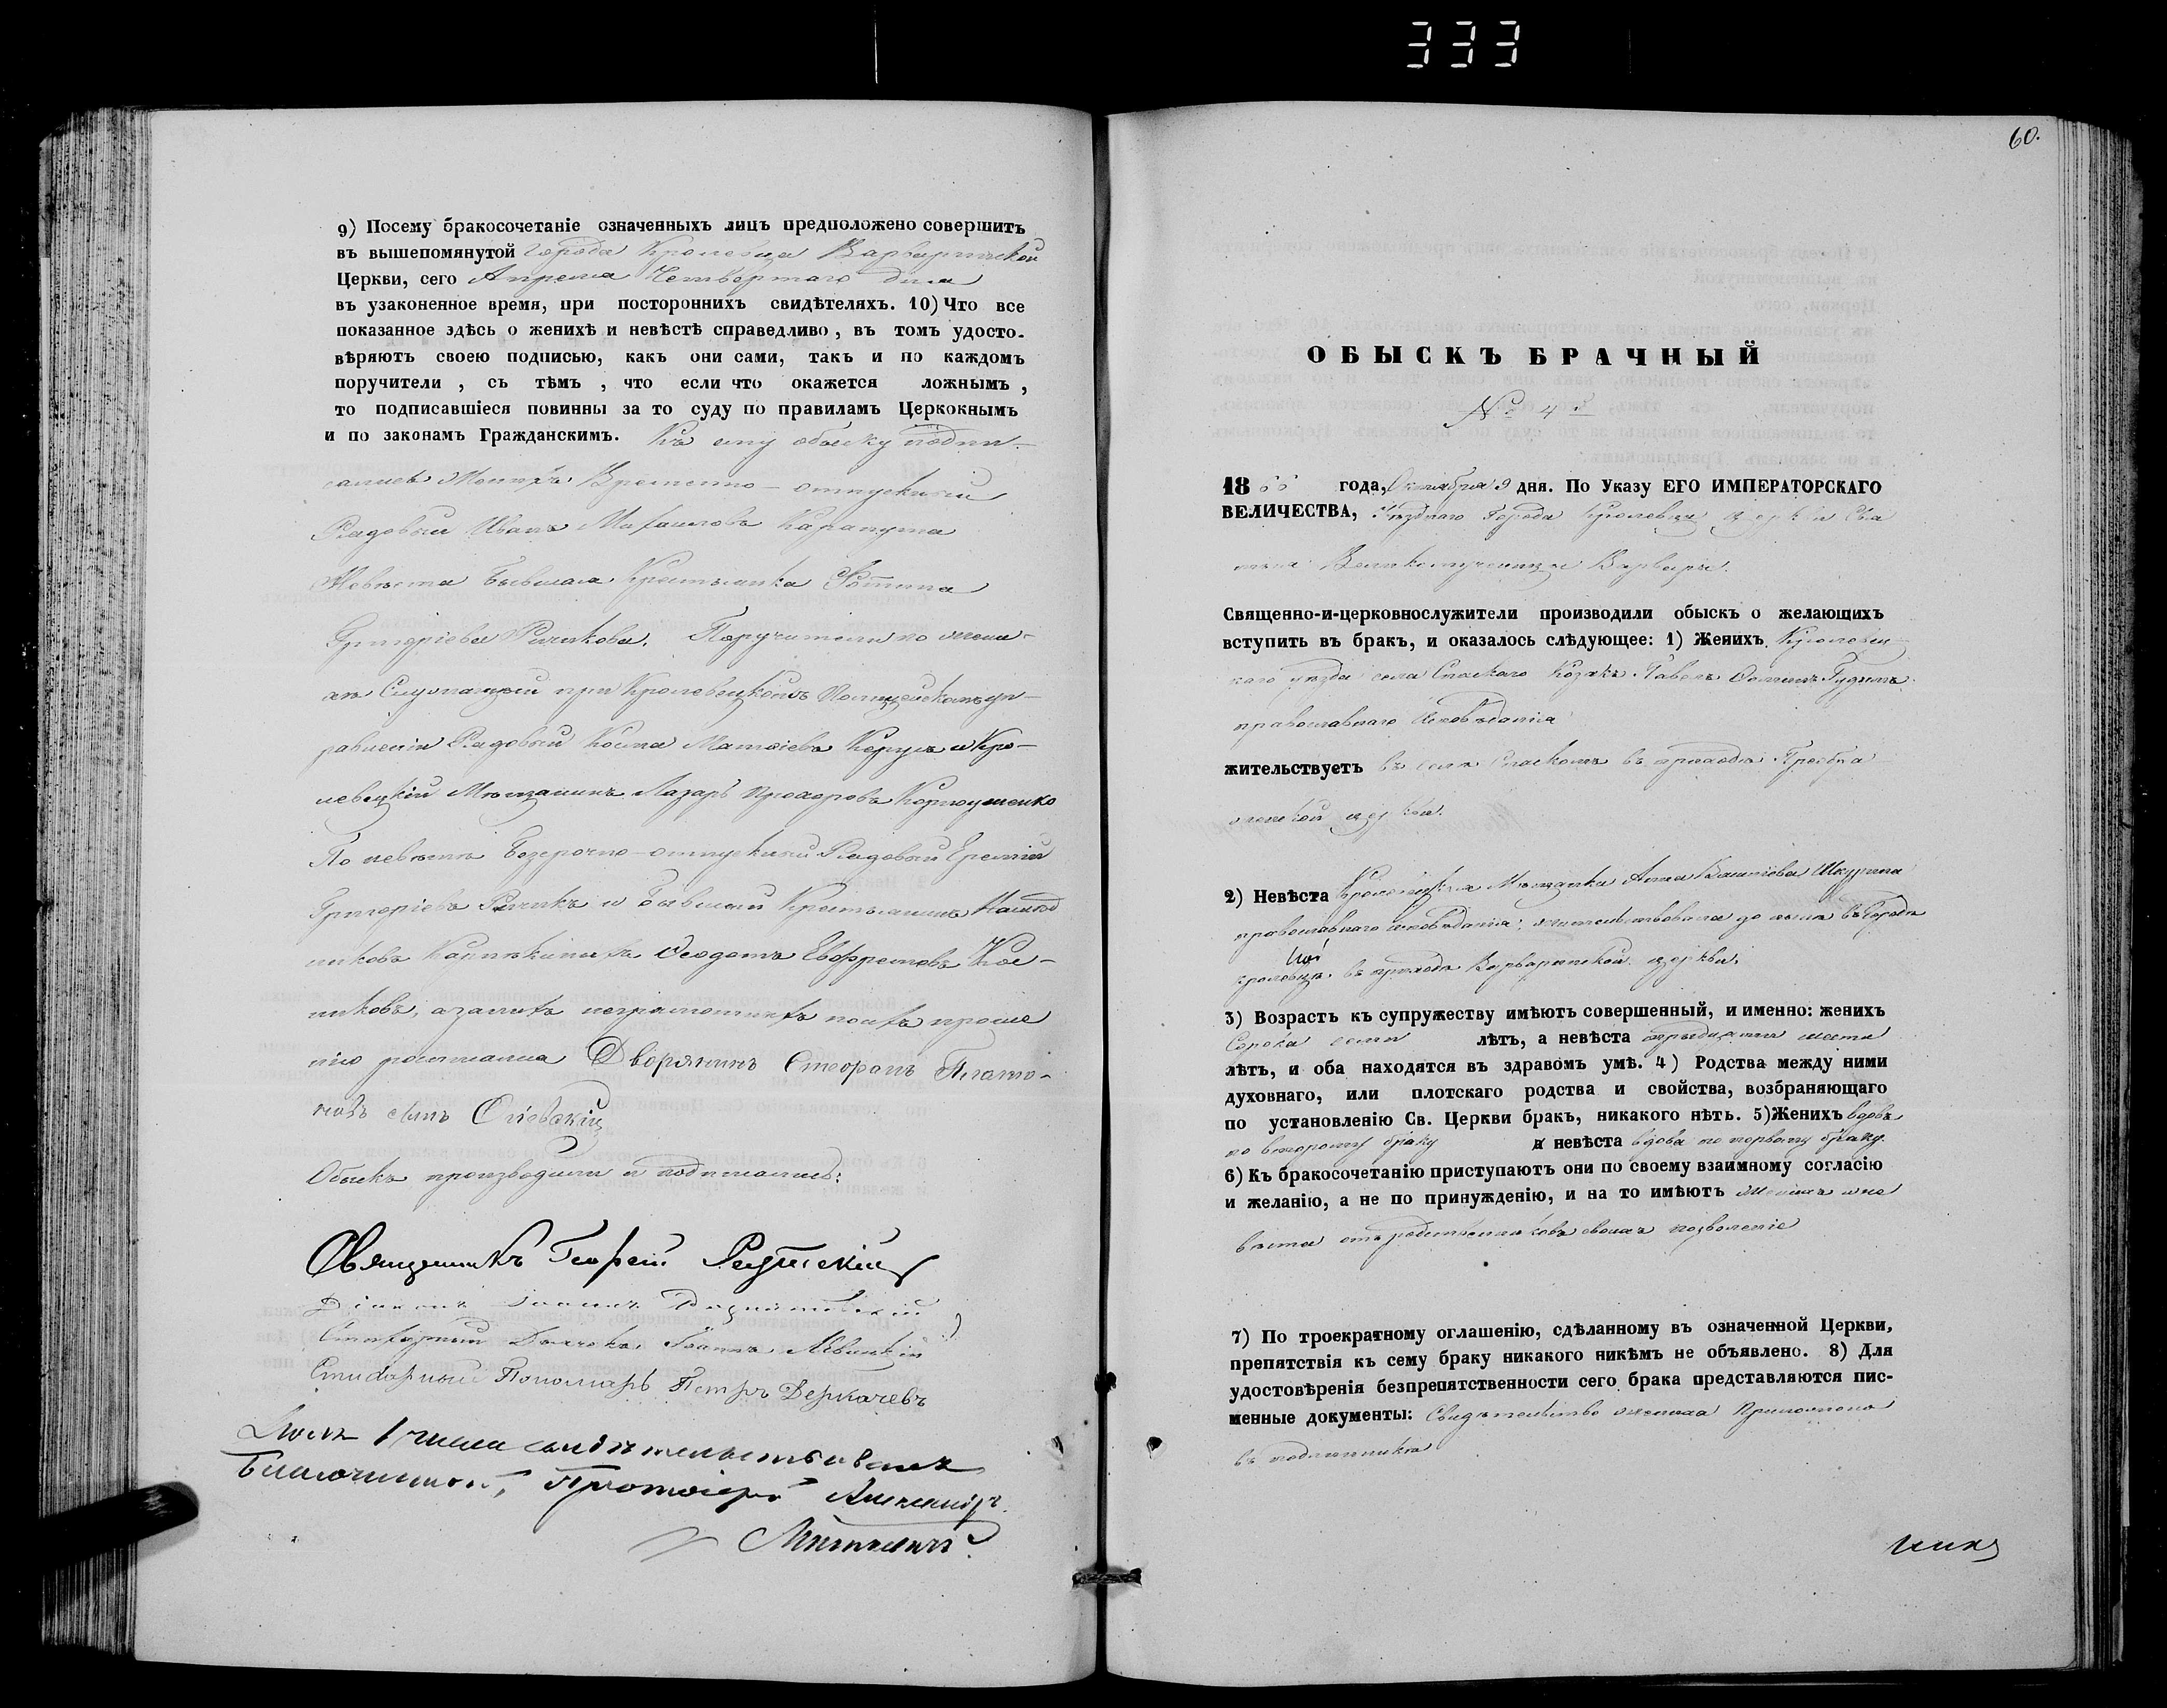 333
9) Посему бракосочетаніе означенныхъ лицъ предположено совершить
въ вышепомянутой города Кролевца Варваринской
Церкви, сего Апреля Четвертаго дня
въ узаконенное время, при постороннихъ свидѣтеляхъ. 10) Что все
показанное здѣсь о женихѣ и невѣстѣ справедливо, въ томъ удосто-
вѣряютъ своею подписью, какъ они сами, такъ и по каждомъ
поручители, съ тѣмъ, что если что окажется ложнымъ,
то подписавшіеся повинны за то суду по правиламъ Церкокнымъ
и по законамъ Гражданскимъ. Къ сему обыску подпи-
сались Женихъ Временно-отпускный
Рядовый Иванъ Михаиловъ
Невѣста бывшая Крестьянка
Григоріева Рички­кова. Поручители по жени-
хѣ Служащый при Кролевецкомъ Полицейскомъ уп-
равленіи Рядовый Косма и Кро-
левецкій Мѣщанинъ Лазаръ Прохоровъ
По невѣстѣ Безсрочно-отпускный Рядовый Еремій
Григоріевъ и бывшый Крестьянинъ
Феодотъ
никовъ, а за нихъ неграмотныхъ по ихъ проше
нію росписался Дворянинъ Стефанъ Плато-
новъ сынъ Огіевскій
Обыскъ производили и подписались:
Священникъ Георгій
Діаконъ Іоаннъ
Стихарный Дьячокъ Іоаннъ Левицкій
Стихарный Пономарь Петръ Деркачевъ
1 числа свидѣтельствовалъ
Благочинный, Протоіерей Александръ
60.
ОБЫСКЪ БРАЧНЫЙ
№ 4й
1866 года, Октября 9 дня. По Указу ЕГО ИМПЕРАТОРСКАГО
ВЕЛИЧЕСТВА, уѣзднаго Города Кролевца церкви Свя
тыя Великомученицы Варвары.
Священно-и-церковнослужители производили обыскъ о желающихъ
вступить въ бракъ, и оказалось слѣдующее: 1) Женихъ Кролевец
каго уѣзда села Спаскаго Козакъ Павелъ
православнаго исповѣданія
жительствуетъ въ селѣ Спаскомъ въ приходѣ Преобра
женской церкви.
2) Невѣста Кролевецкая Мѣщанка Анна
православнаго исповѣданія; жительствовала до нынѣ въ Городѣ
Кролевцѣ въ приходѣ Варваринской церкви.
3) Возрастъ къ супружеству имѣютъ совершенный, и именно: женихъ
Сорока семи лѣтъ, а невѣста тридцати шести
лѣтъ, и оба находятся въ здравомъ умѣ. 4) Родства между ними
духовнаго, или плотскаго родства и свойства, возбраняющаго
по установленію Св. Церкви бракъ, никакого нѣтъ. 5) Женихъ вдовъ
по второму браку а невѣста вдова по первому браку.
6) Къ бракосочетанію приступаютъ они по своему взаимному согласію
и желанію, а не по принужденію, и на то имѣютъ Женихъ и не
вѣста отъ родственниковъ своихъ позволеніе
7) По троекратному оглашенію, сдѣланному въ означенной Церкви,
препятствія къ сему браку никакого никѣмъ не объявлено. 8) Для
удостовѣренія безпрепятственности сего брака представляются пис-
менные документы: Свидѣтельство жениха Приложено
въ подлинникѣ